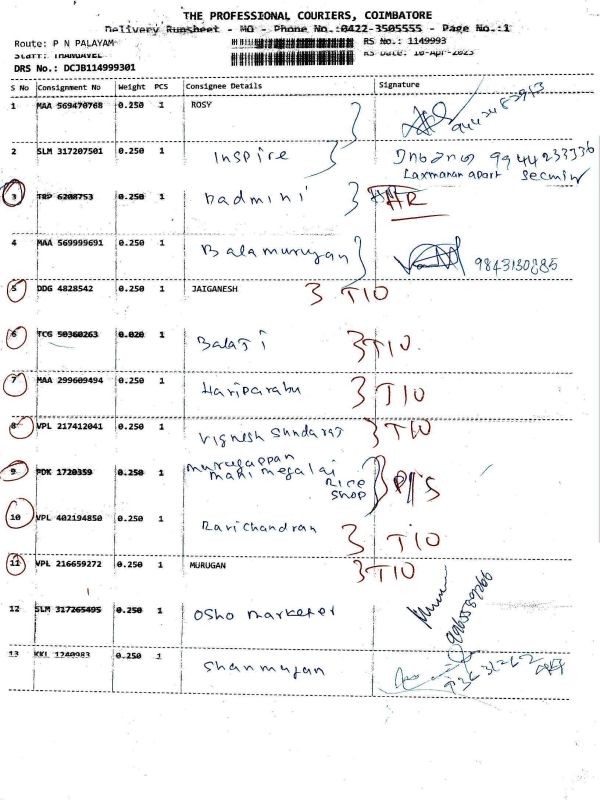 THE PROFESSIONAL COURIERS, COIMBATORE
Delivery Runsheet - MO - Phone No.:0422-3505555 - Page No.:1
Route: P N PALAYAM RS No.: 1149993
Staff: THANGAVEL RS Date: 10-Apr-2023
DRS No.: DCJB114999301
S No Consignment No Weight PCS Consignee Details Signature
1 MAA 569470768 0.250 1 ROSY
2 SLM 317207501 0.250 1 Inspire 9944233336
Laxmanan apart
3 TRP 6208753 0.250 1 Padmini
4 MAA 569999691 0.250 1 Balamurugan
5 DDG 4828542 0.250 1 JAIGANESH 3 TIO
6 TCG 50360263 0.020 1 Balaji 3 TIO
7 MAA 299609494 0.250 1 Hariparabu 3 TIO
8 VPL 217412041 0.250 1 Vignesh Sundaraj 3 TIO
9 PDK 1720359 0.250 1 Murugappan
Mani Megalai
Rice
Shop P/S
10 VPL 402194850 0.250 1 Ravichandran 3 TIO
11 VPL 216659272 0.250 1 MURUGAN 3 TIO
12 SLM 317265495 0.250 1 Osho Marketer
13 KKL 1740983 0.250 1 Shanmugan